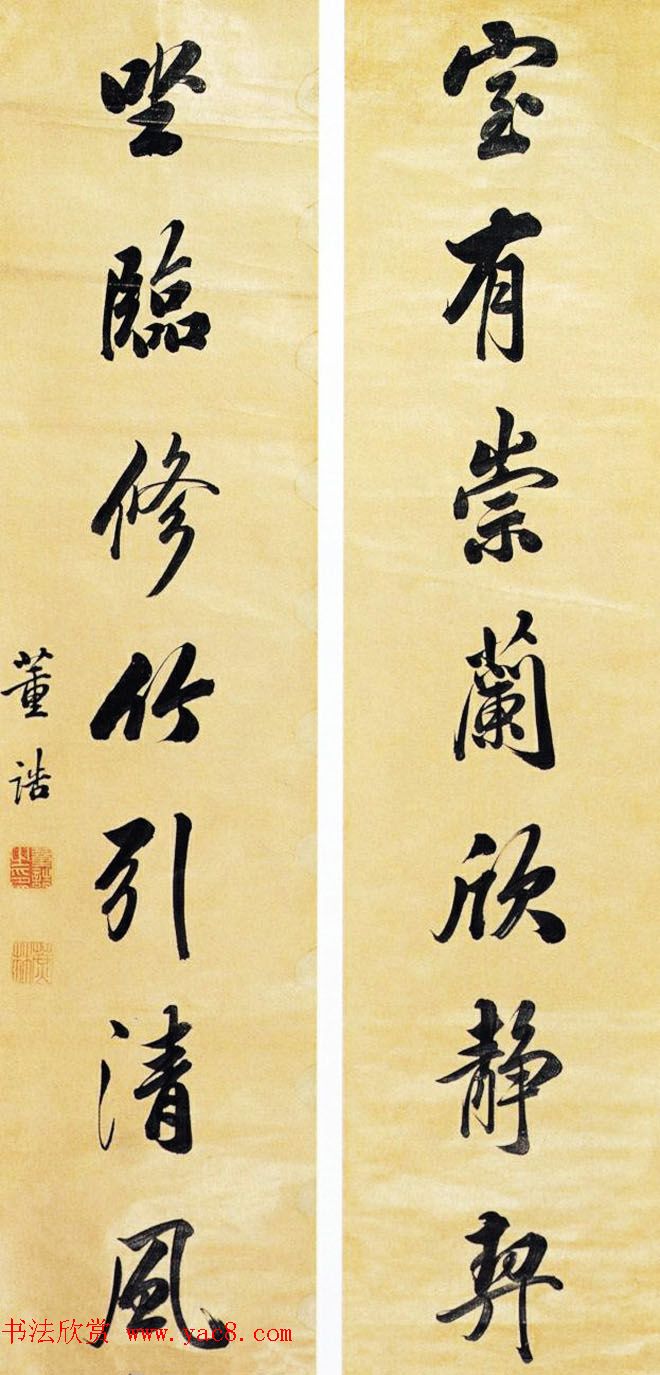 室有崇蘭欣静契
坐臨修竹引清風
董誥
书法欣赏 www.yac8.com